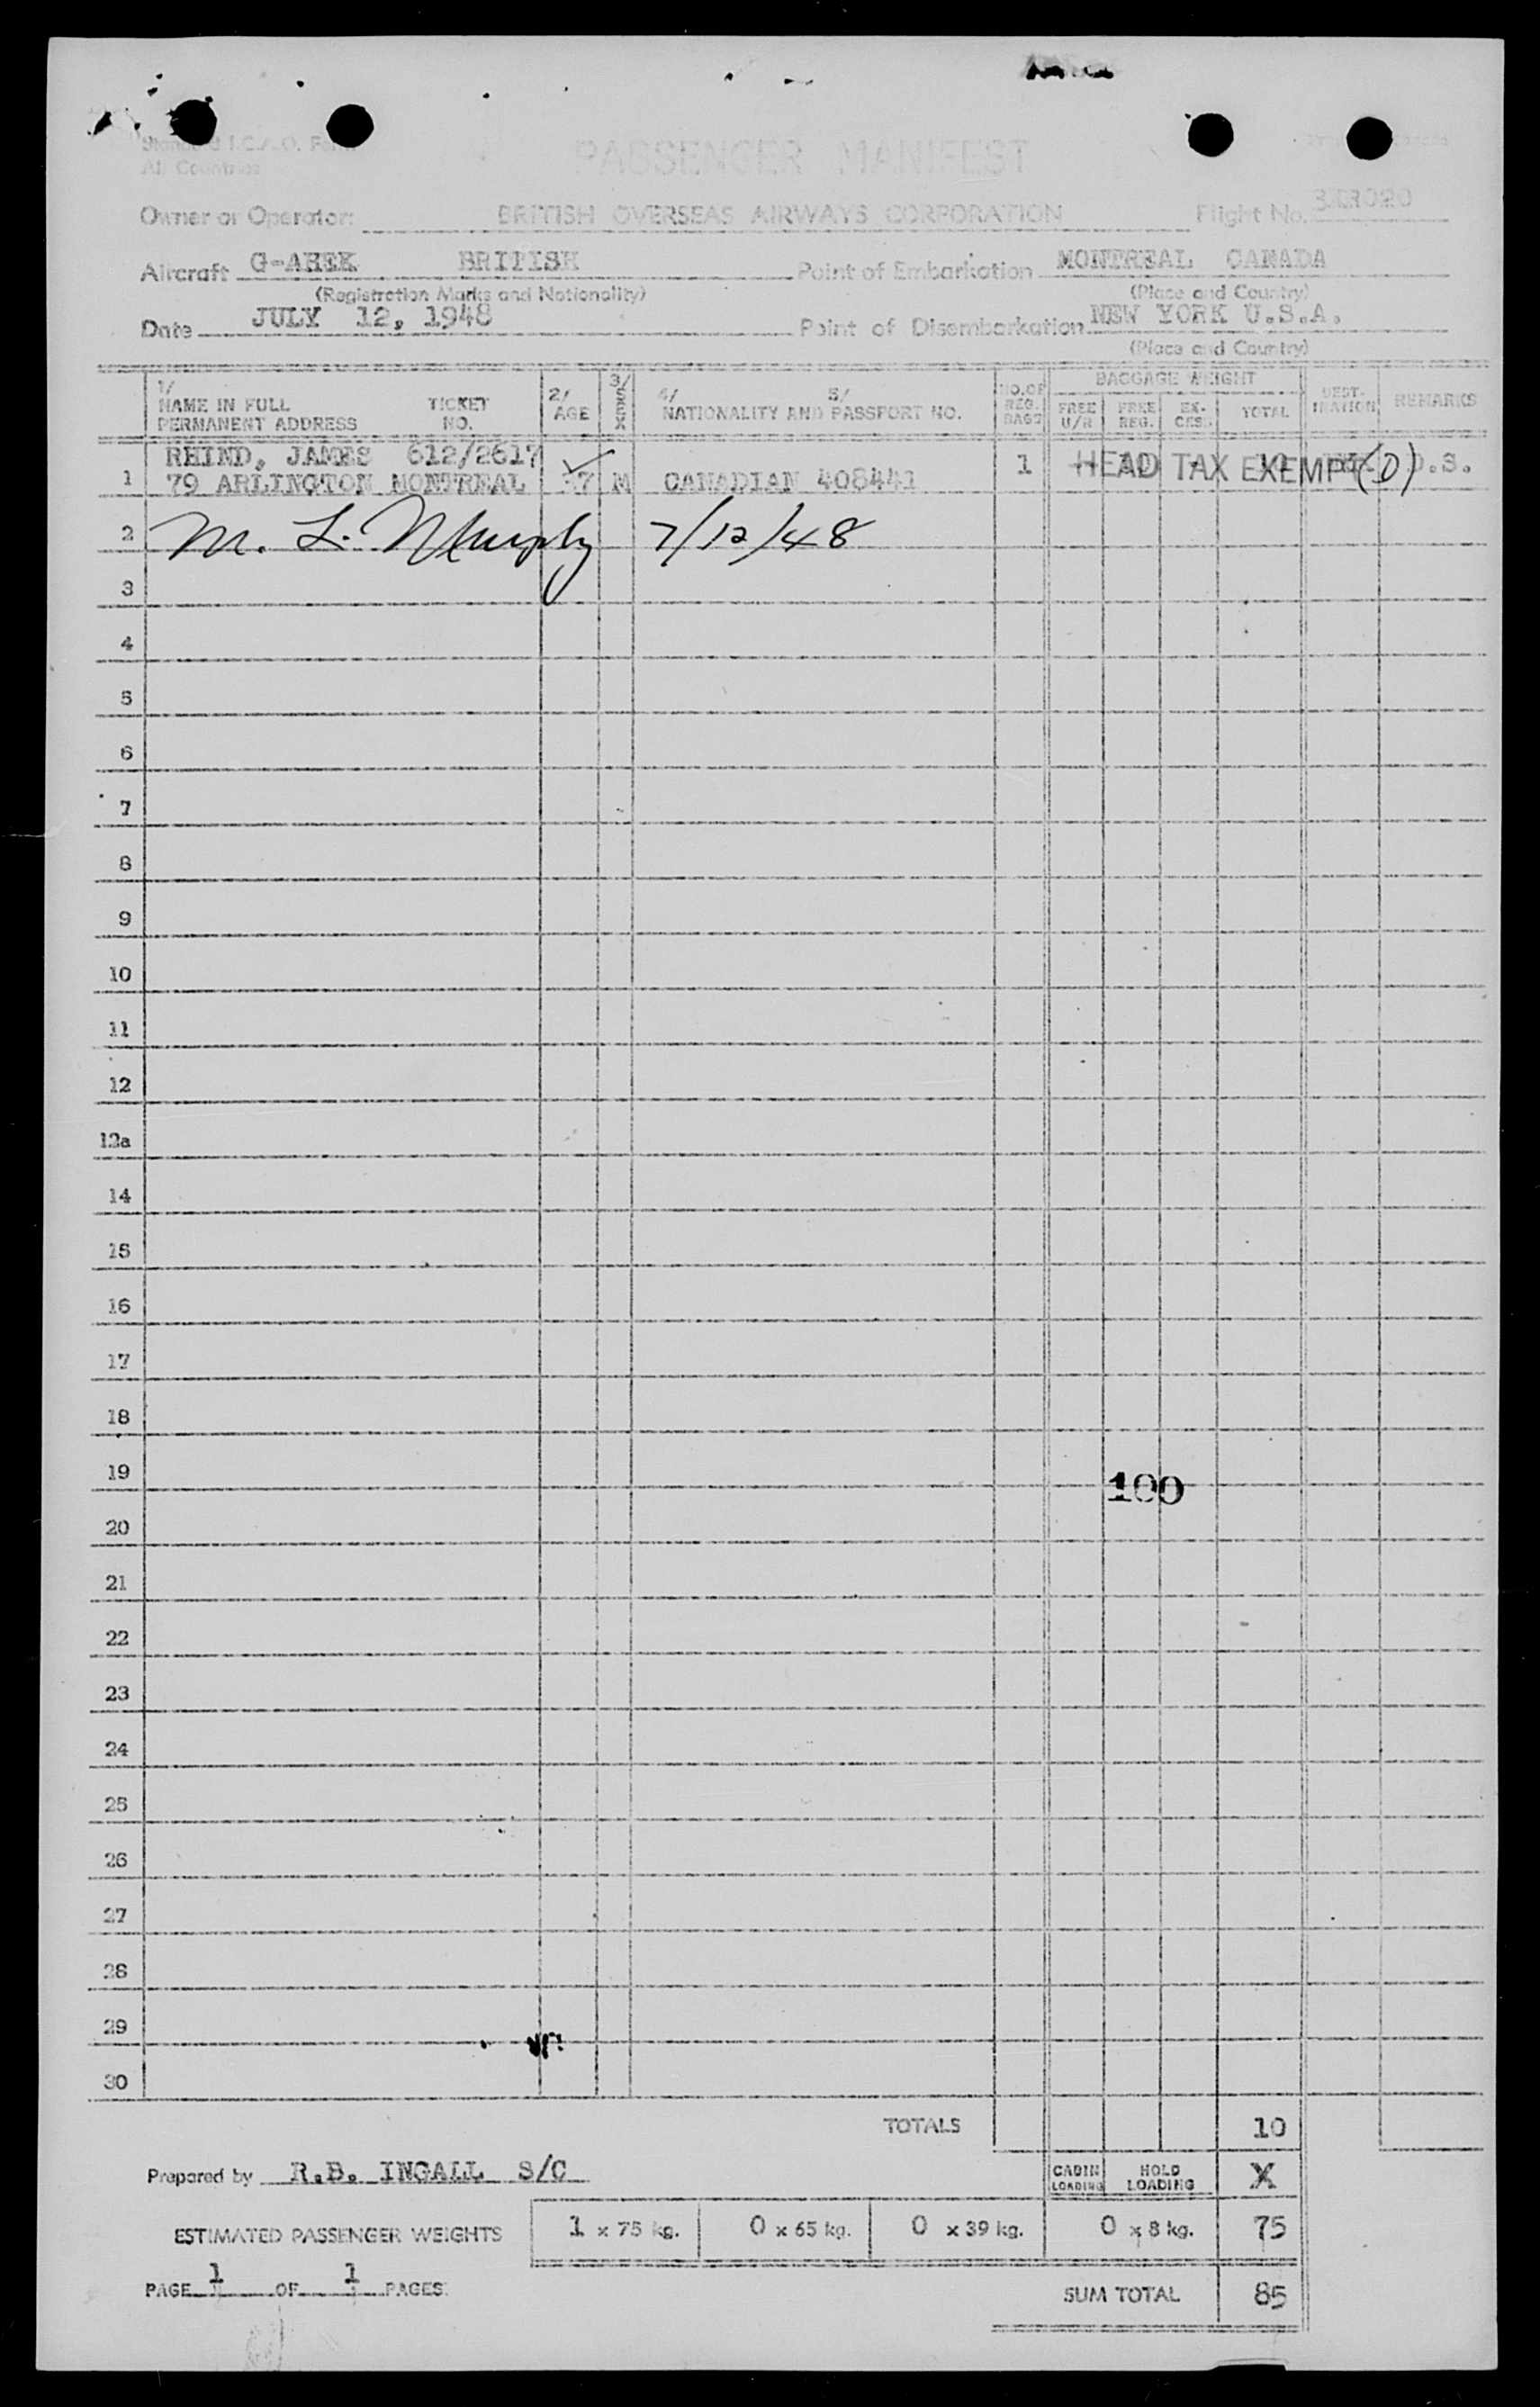 Standard I.C.A.O. Form
All Countries
PASSENGER MANIFEST
Owner or Operator: BRITISH OVERSEAS AIRWAYS CORPORATION Flight No.
Aircraft G-AHEK BRITISH Point of Embarkation MONTREAL CANADA
(Registration Marks and Nationality) (Place and Country)
Date JULY 12, 1948 Point of Disembarkation NEW YORK U.S.A.
(Place and Country)
1/ NAME IN FULL PERMANENT ADDRESS TICKET NO. 2/ AGE 3/ SEX 4/ 5/ NATIONALITY AND PASSPORT NO. NO. OF REG. BAGS BAGGAGE WEIGHT FREE U/R FREE REG. EX-CESS TOTAL DEST-INATION REMARKS
RHIND, JAMES 612/2617
1 79 ARLINGTON MONTREAL M CANADIAN 408441 1 HEAD TAX EXEMPT (D) D.S.
2 M. L. Murphy 7/12/48
3
4
5
6
7
8
9
10
11
12
12a
14
15
16
17
18
19
100
20
21
22
23
24
25
26
27
28
29
30
TOTALS 10
Prepared by R.B. INGALL S/C CABIN LOADING HOLD LOADING X
ESTIMATED PASSENGER WEIGHTS 1 x 75 kg. 0 x 65 kg. 0 x 39 kg. 0 x 8 kg. 75
PAGE 1 OF 1 PAGES
SUM TOTAL 85